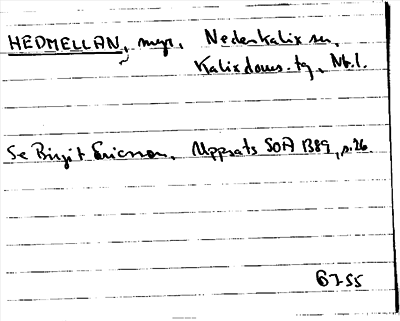 HEDMELLAN, myr, Nederkalix sn,
Kalix doms. tg, Nb.l.
Se Birgit Ericson, Uppsats SOA B89, s. 26.
6755